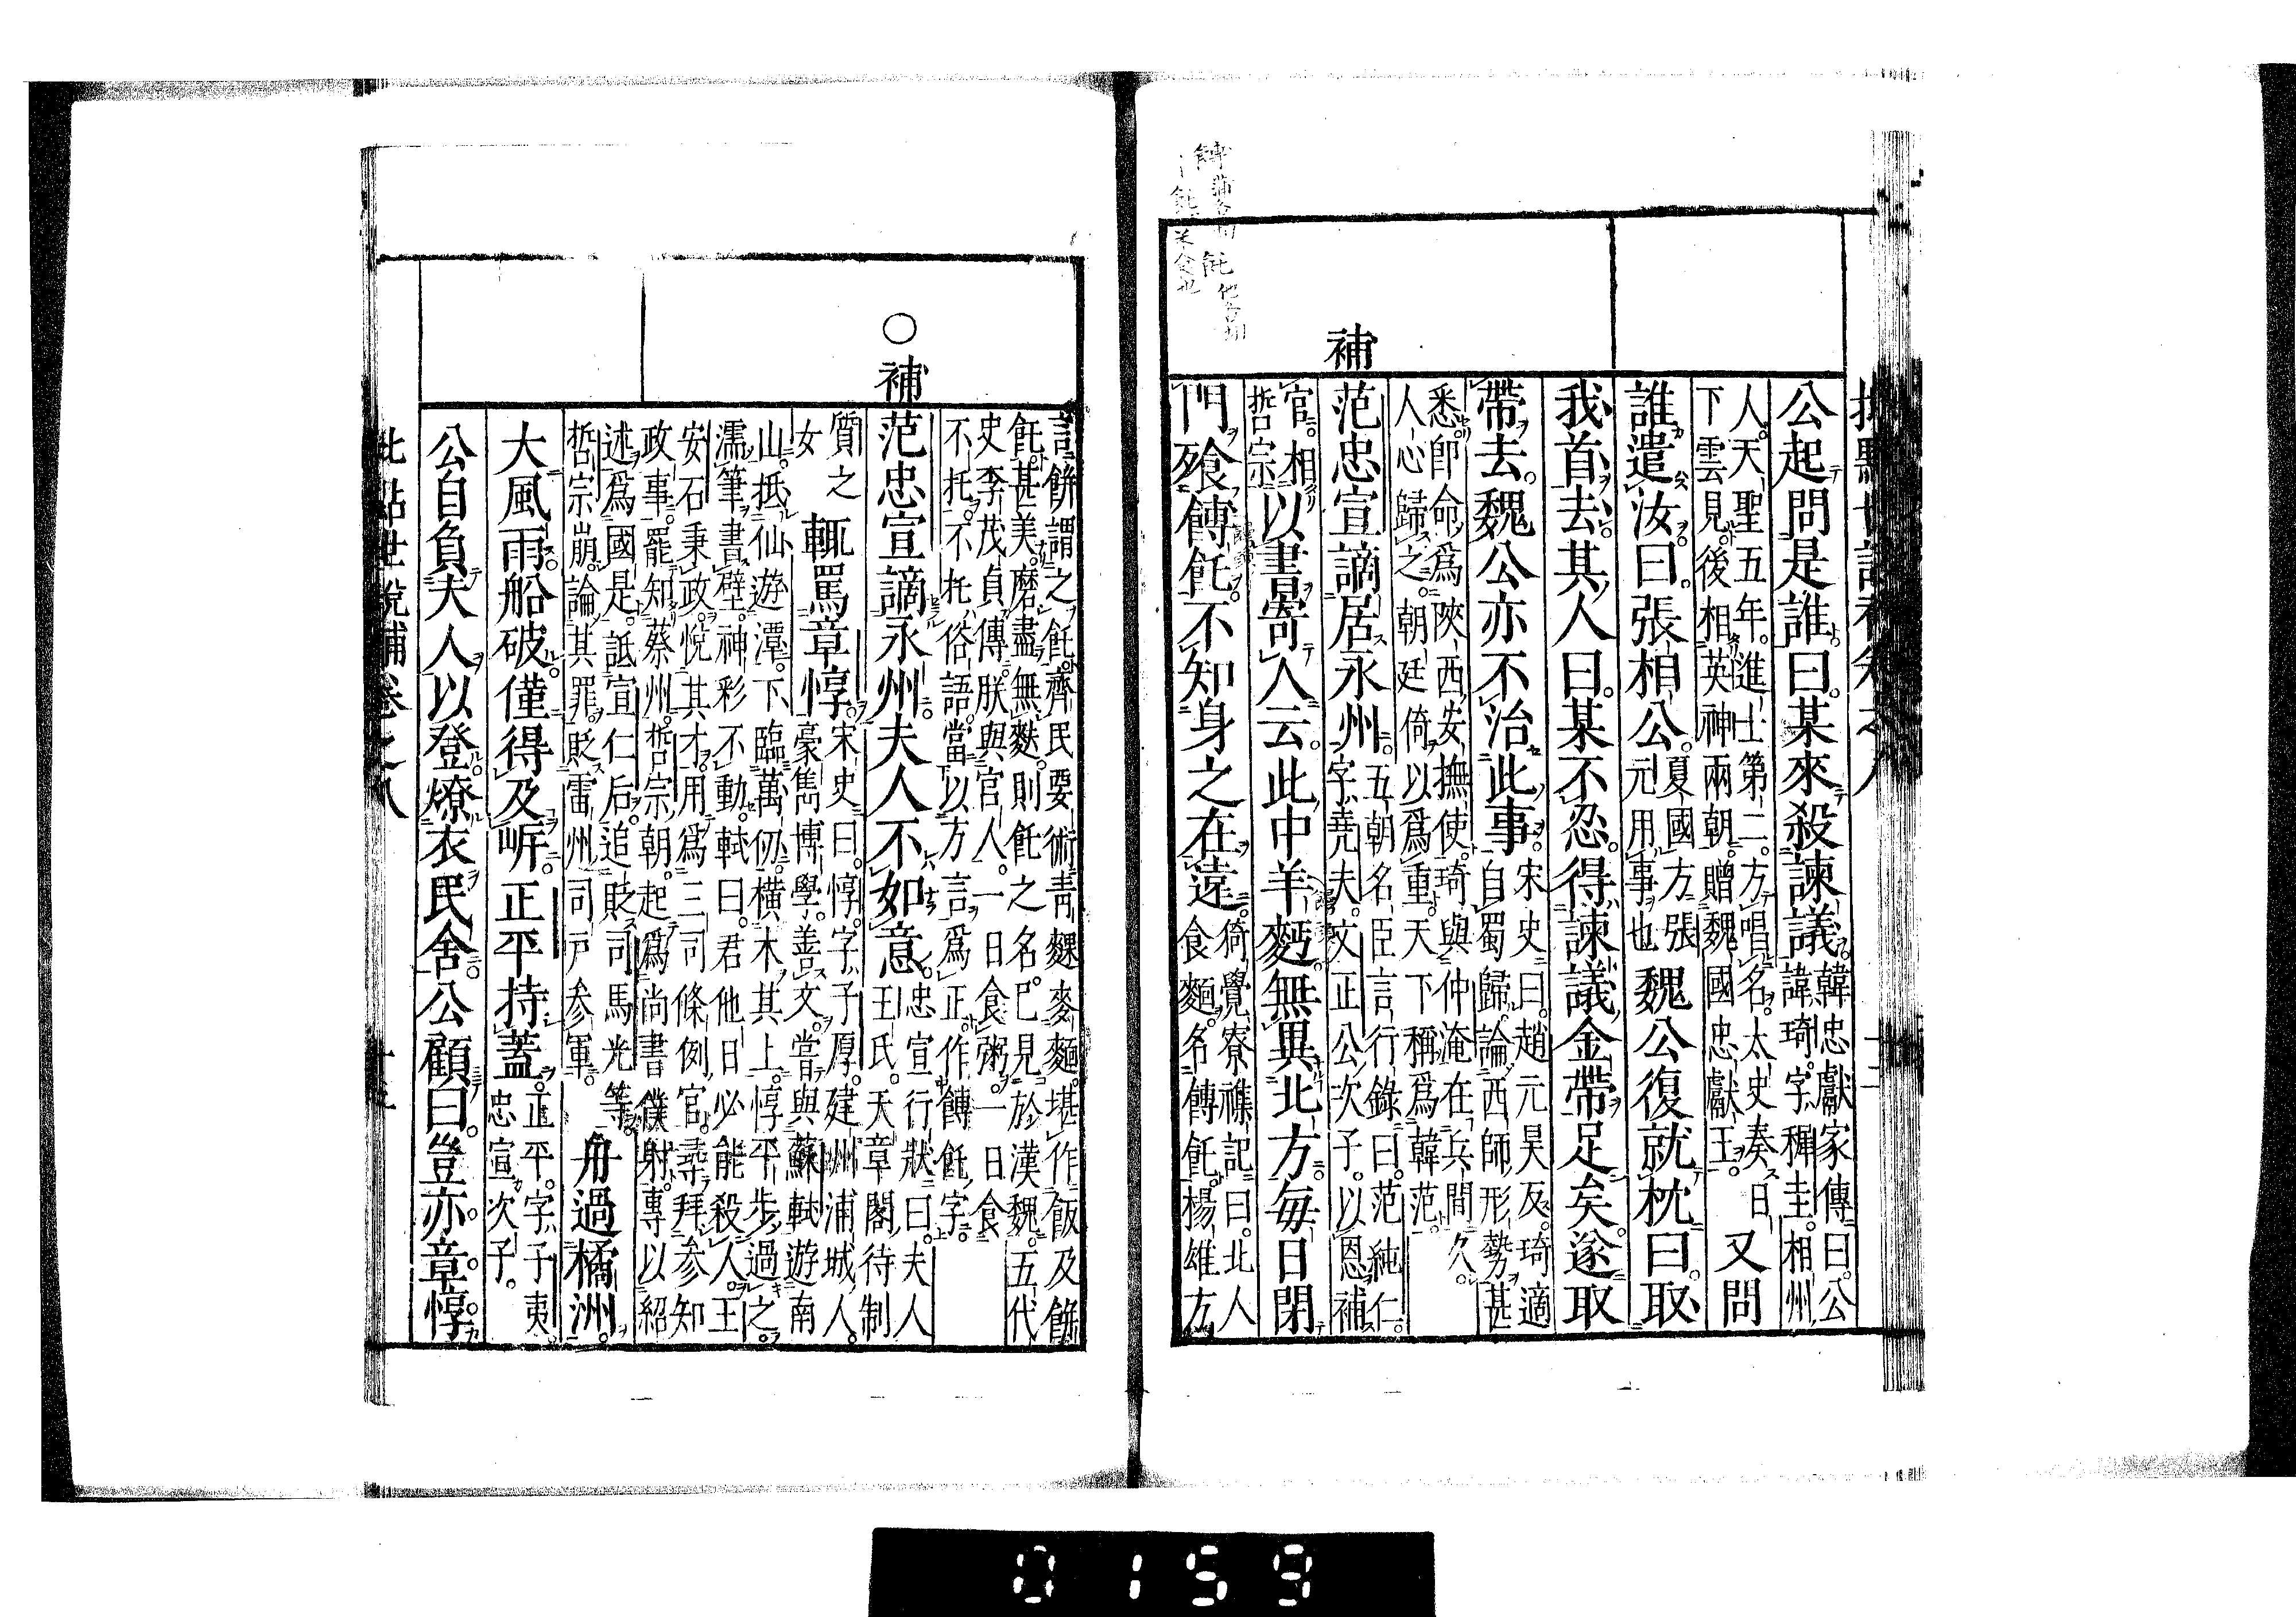 補
公起問是誰曰某來殺諫議韓忠獻家傳曰公
諱琦字穉圭相州
人天聖五年進士第二方唱名太史奏日
下雲見後相英神兩朝贈魏國忠獻王又問
誰遣汝曰張相公夏國方張
元用事也魏公復就枕曰取
我首去其人曰某不忍得諫議金帶足矣遂取
帶去魏公亦不治此事宋史曰趙元昊反琦適
自蜀歸論西師形勢甚
悉即命爲陝西安撫使琦與仲淹在兵間久
人心歸之朝廷倚以爲重天下稱爲韓范
范忠宣謫居永州五朝名臣言行錄曰范純仁
字堯夫文正公次子以恩補
官相
哲宗以書寄人云此中羊麪無異北方每日閉
門飱餺飥不知身之在遠猗覺寮襍記曰北人
食麵名餺飥楊雄方
○補
言餅謂之飥齊民要術靑䴹麥麵堪作飯及餅
飥甚美磨盡無麩則飥之名已見於漢魏五代
史李茂貞傳朕與官人一日食粥一日食
不托不托俗語當以方言爲正作餺飥字
范忠宣謫永州夫人不如意忠宣行狀曰夫人
王氏天章閣待制
質之
女輒罵章惇宋史曰惇字子厚建州浦城人
豪雋博學善文嘗與蘇軾遊南
山抵仙遊潭下臨萬仞橫木其上惇平步過之
濡筆書壁神彩不動軾曰君他日必能殺人王
安石秉政悅其才用爲三司條例官尋拜參知
政事罷知蔡州哲宗朝起爲尚書僕射專以紹
述爲國是詆宣仁后追貶司馬光等
哲宗崩論其罪貶雷州司戶參軍舟過橘洲
大風雨船破僅得及岸正平持蓋正平字子夷
忠宣次子
公自負夫人以登燎衣民舍公顧曰豈亦章惇
0159